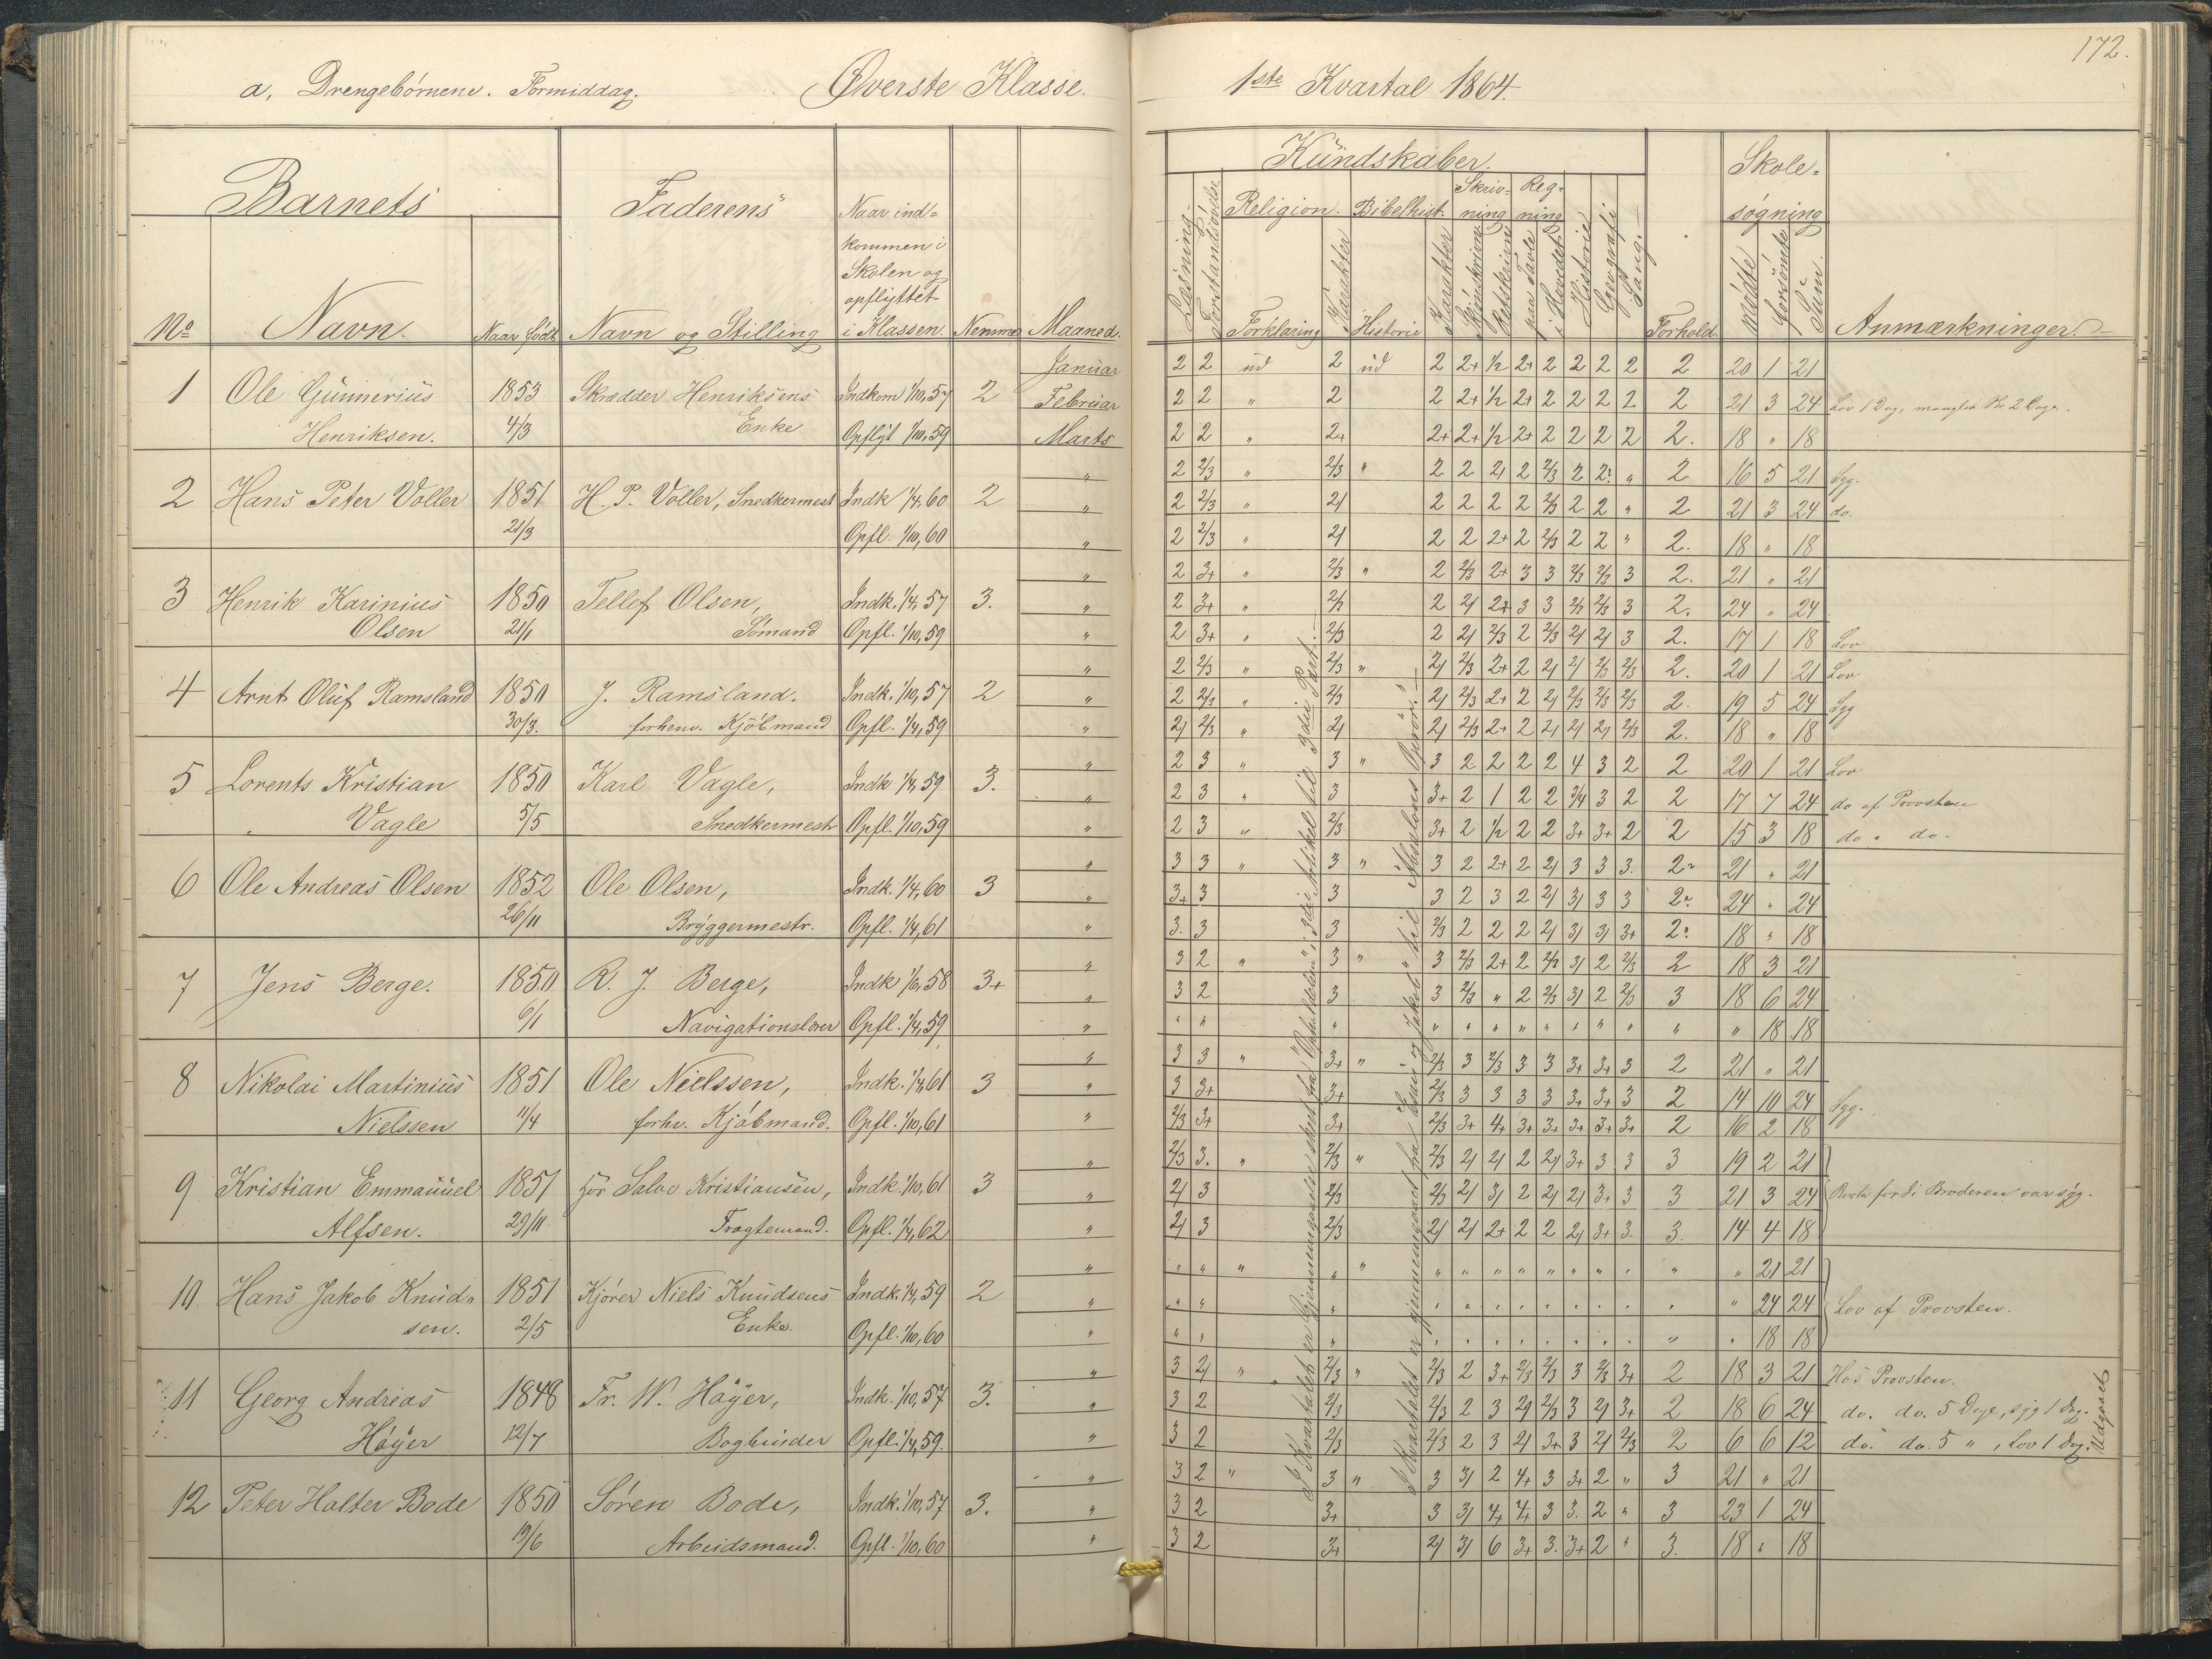 172.
a, Drengebørnene. Formiddag. Øverste Klasse. 1ste Kvartal 1864.
Barnets Faderens Naar ind=
kommen i
Skolen og
opflyttet
No Navn. Naar født Navn og Stilling i Klassen. Nemme Maaned.
Kundskaber. Skole=
søgning
Læsning Forstandsøvelse Religion. Bibelhist. Skriv=ning Reg=ning Historie Geografi Sang.
Forklaring Karakter Historie Karakter Skjønskrivn Retskrivn paa Tavle i Hovedet Forhold. mødte forsømte Sum. Anmærkninger.
Januar 2 2 ud 2 ud 2 2+ 1/2 2+ 2 2 2 2 2 20 1 21
1 Ole Gunnerius 1853 Skrædder Henriksens Indkom 1/10,57 2 Februar 2 2 " 2 2 2+ 1/2 2+ 2 2 2 2 2 21 3 24 Lov 1 Dag, 2 Dage.
Henriksen. 4/3 Enke Opflyt 1/10,59 Marts 2 2 " 2+ 2+ 2+ 1/2 2+ 2 2 2 2 2. 18 " 18
" 2 2/3 " 2/3 " 2 2 2/ 2 2/3 2 2 " 2 16 5 21 Syg.
2 Hans Peter Voller 1851 H. P. Voller, Snedkermest Indk 1/4,60 2 " 2 2/3 " 2/ 2 2 2 2 2/3 2 2 " 2 21 3 24 do.
21/3 Opfl. 1/10,60 " 2 2/3 " 2/ 2 2 2+ 2 2/3 2 2 " 2. 18 " 18
" 2 3+ " 2/3 " 2 2/3 2+ 3 3 2/3 2/3 3 2. 21 " 21
3 Henrik Karinius 1850 Tellef Olsen, Indk. 1/4,57 3. " 2 3+ " 2/3 2 2/ 2+ 3 3 2/3 2/3 3 2. 24 " 24
Olsen 21/1 Sømand Opfl. 1/10,59 " 2 3+ " 2/3 2 2/ 2/3 2 2/3 2/ 2/ 3 2. 17 1 18 Lov
" 2 2/3 " 2/3 " 2/ 2/3 2+ 2 2/ 2/ 2/3 2/3 2. 20 1 21 Lov
4 Arnt Oluf Ramsland 1850 J. Ramsland. Indk. 1/10,57 2 " 2 2/3 " 2/3 2/ 2/3 2+ 2 2/ 2/3 2/3 2/3 2. 19 5 24 Syg
30/3. forhenv. Kjøbmand Opfl. 1/4,59 " 2/ 2/3 " 2/ 2/ 2/3 2+ 2 2/ 2/ 2/ 2/3 2. 18 " 18
" 2 3 " 3 " 3 2 2 2 2 4 3 2 2 20 1 21 Lov
5 Lorents Kristian 1850 Karl Vagle, Indk 1/4,59 3. " 2 3 " 3 3+ 2 1 2 2 3/4 3 2 2 17 7 24 do af Provsten
Vagle 5/5 Snedkermest Opfl. 1/10,59 " 2 3 " 2/3 3+ 2 1/2 2 2 3+ 3+ 2 2 15 3 18 do " do.
" 3 3 " 3 " 3 2 2+ 2 2/ 3 3 3. 2 21 " 21
6 Ole Andreas Olsen 1852 Ole Olsen, Indk. 1/4,60 3 " 3+ 3 3 3 2 3 2 2/ 3/ 3 3 2 24 " 24
26/11 Bryggermestr. Opfl. 1/4,61 " 3. 3 3 2/3 2 2 2 2/ 3/ 3/ 3+ 2 18 " 18
" 3 2 " 3 " 3 2/3 2+ 2 2/3 3/ 2 2/3 2 18 3 21
7 Jens Berge. 1850 R. J. Berge, Indk 1/6,58 3+ " 3 2 3 3 2/3 " 2 2/3 3/ 2 2/3 3 18 6 24
6/1 Navigationslærer Opfl. 1/4,59 " " " " " " " " " " " " " " 18 18
" 3 3 " 3+ " 2/3 3 2/3 3 3 3+ 3+ 3 2 21 " 21
8 Nikolai Martinius 1851 Ole Nielssen, Indk. 1/4,61 3 " 3 3+ 3+ 2/3 3 3 3 3 3+ 3+ 3 2 14 10 24 Syg.
Nielssen 11/4 forhv. Kjøbmand. Opfl. 1/10,61 " 2/3 3+ 3+ 2/3 3+ 4+ 3+ 3+ 3+ 3+ 3+ 2 16 2 18
" 2/3 3. " 2/3 " 2/3 2/ 2/ 2 2/ 3+ 3 3 3 19 2 21
9 Kristian Emmanuel 1851 hos Salve Kristiansen, Indk 1/10,61 3 " 2/ 3 2/3 2/3 2/ 3/ 2 2/ 2/ 3+ 3 3 21 3 24 fordi Broderen var syg.
Alfsen. 29/11 Fragtemand. Opfl. 1/4,62 " 2/ 3 2/3 2/ 2/ 2+ 2 2 2/ 3+ 3. 3. 14 4 18
" " " " " " " " " " " " " " " " 21 21
10 Hans Jakob Knud= 1851 Kjører Niels Knudsens Indk. 1/4,59 2 " " " " " " " " " " " " " " 24 24 Lov af Provsten.
sen. 2/5 Enke. Opfl. 1/10,60 " " " " " " " " " " " " " " 18 18
" 3 2/ " 2/3 " 2/3 2 3+ 2/3 2/3 3 2/3 3+ 2 18 3 21 Hos Provsten.
11 Georg Andreas 1848 Fr. W. Høyer, Indk. 1/10,57 3. " 3 2 2/3 2/3 2 3 2/ 2/3 3 2/ 3+ 2 18 6 24 do. do. 5 Dage, syg 1 Dag.
Høyer 12/7 Bogbinder Opfl. 1/4,59. " 3 2 2/3 2/3 2 3 2/ 3+ 3 2/ 2/3 2 6 6 12 do. do. 5 " , Lov 1 Dag. Udgaaet
" 3 2 " 3 " 3 3/ 2 4+ 3 3+ 2 " 3 21 " 21
12 Peter Halter Bode 1850 Søren Bode, Indk. 1/10,57 3. " 3 2 3+ 3 3/ 4+ 4+ 3 3. 2 " 3 23 1 24
19/6 Arbeidsmand. Opfl. 1/10,60 " 3 2 3+ 2/ 3/ 6 3+ 3. 3+ 2 " 3. 18 " 18
I Kvartalet er Gjennemgaaelse skeet fra "Opholdelsen" i 3die Artikel til 3die Part.
I Kvartalet er gjennemgaaet fra Esau og Jakob" til